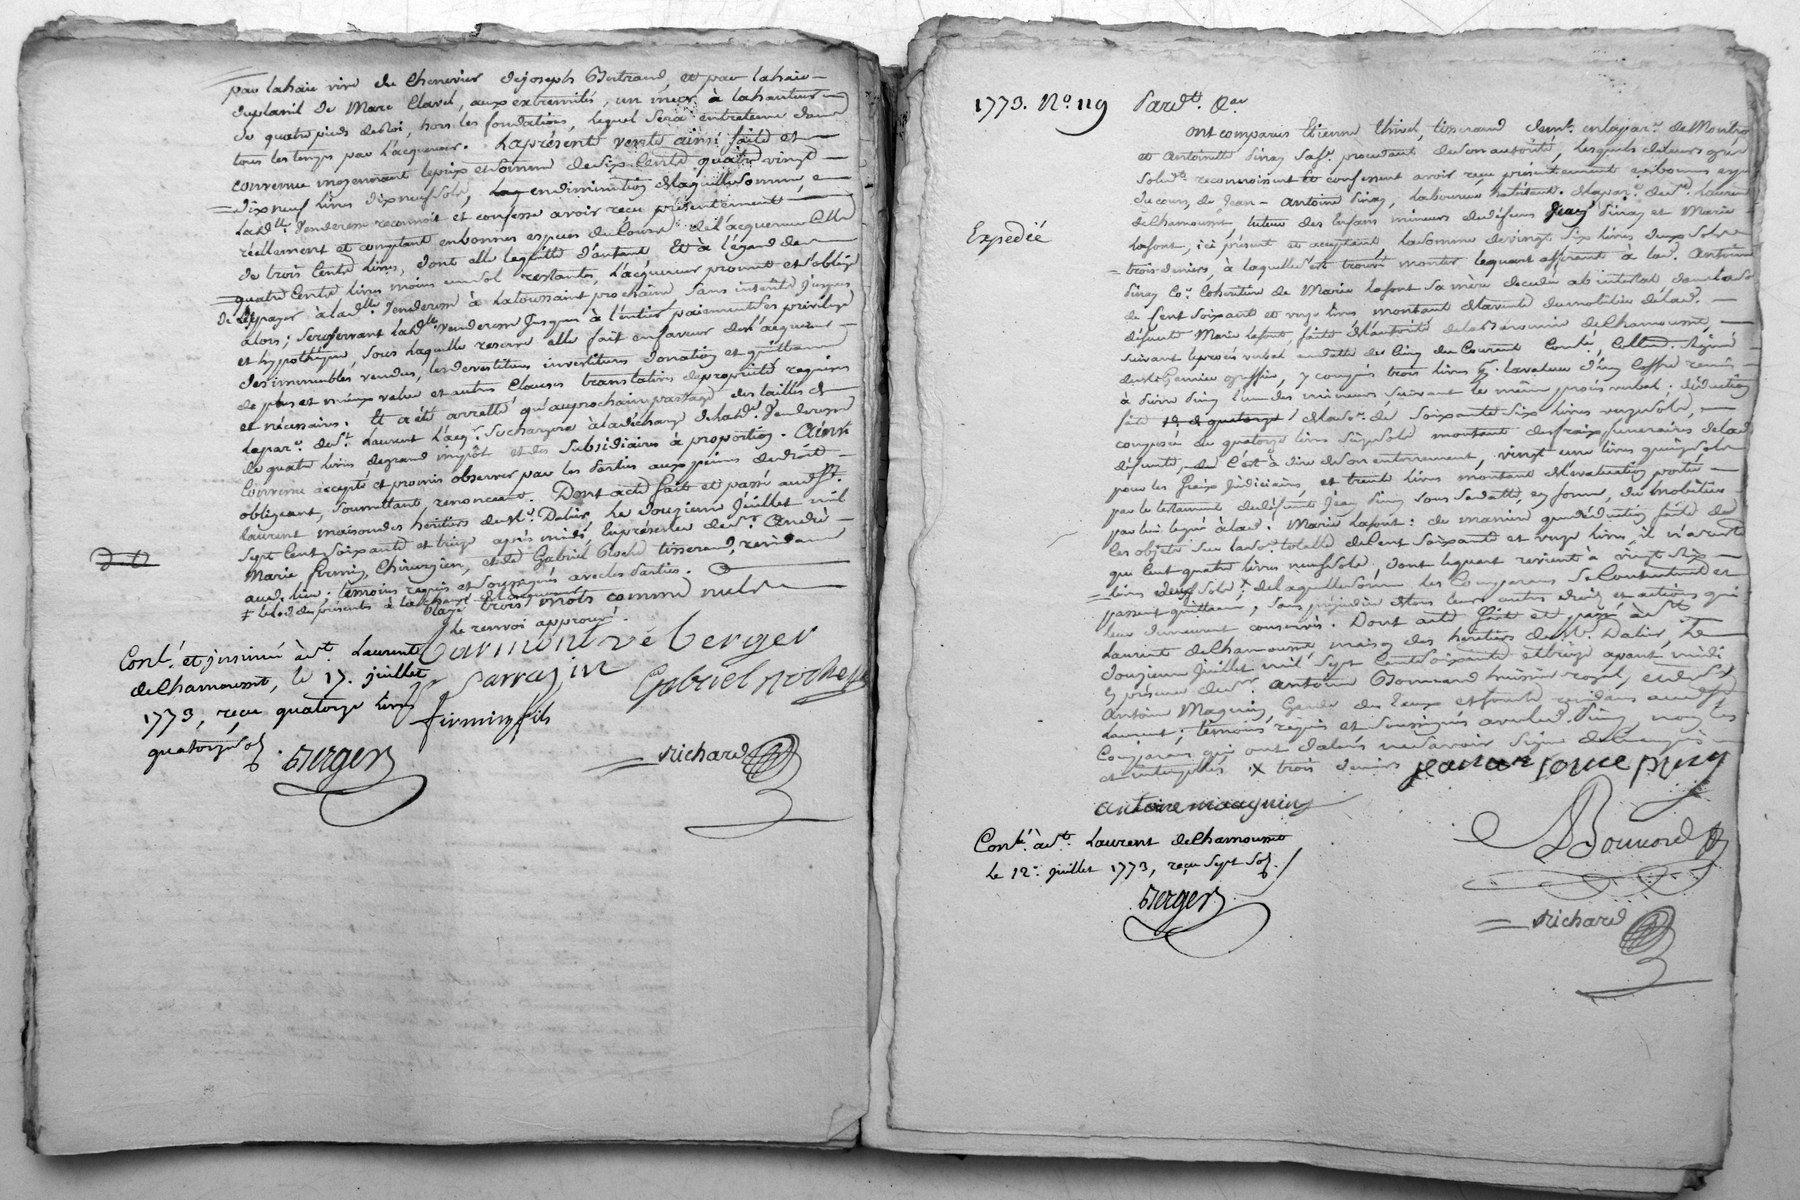 par la haie vive du chenevier de joseph Bertrand, et par la haie
du plavil de Marc Clavel, aux extremités, un mur à la hauteur
de quatre pieds de Roi, hors les fondations, lequel sera entretenu dans
tous les temps par l'acquereur. La présente vente ainsi faite et
convenue moyennant le prix et somme de six Cents quatre vingt
dix neuf livres dix neuf sols, en diminution de laquelle somme,
lad. Venderesse reconnoit et confesse avoir reçu présentement
réellement et comptant en bonnes especes du Cours de l'acquereur
de trois Cents livres, dont elle le quitte d'autant. Et à l'égard des
quatre Cents livres moins un sol restantes, l'acquereur promet et s'oblige
de les payer à lad. Venderesse à la toussaint prochaine sans interêts jusques
alors ; se reservant lad. venderesse jusques à l'entier paiement ses privilege
et hypothéque, sous laquelle reserve elle fait en faveur de l'acquereur
des immeubles vendus, les devestitures investitures donation et quittance
de plus et mieux value et autres clauses translatives de propriété requises
et nécessaires. Et a été arretté qu'au prochain passage des tailles de
la par. de St. Laurent l'acq. se chargera à la décharge de lad. Venderesse
de quatre livres de grand impôt et des subsidiaires à proportion. Ainsi
convenu accepté et promis observer par les Parties aux peines de droit
obligeant, soumettant, renonceant. Dont acte fait et passé aud. St.
Laurent maison des héritiers de Mr. Dalier, Le douzieme Juillet mil
sept Cent soixante et treize après midi, En présence de Sr. André
Marie firmin Chirurgien, et de Gabriel Roche tisserand, residants
aud. lieu : témoins requis et soussignés avec les Parties.
trois mots comme nuls
Le renvoi approuvé.
Carmont vé berger
Sarrazin
Gabriel roche
firmin fils
Richard
Conlé. et insinué à St. Laurent
de Chamousset, le 17. juillet
1773, reçu quatorze livres
quatorze sols
Berger
1773. No. 119 Pardt. &ar
Expediée
Ont comparus Etienne Thivel, tisserand demt. en la par. de Montro
et Antoinette Pinay sa fe. procedant de son autorité, Lesquels de leurs gré
solidt. reconnoissent et confessent avoir reçu présentement en bonnes especes
du cours, de Jean-Antoine Pinay, laboureur habitant de la par. de St. Laurent
de Chamousset, tuteur des Enfans mineurs de défunts Jean Pinay et Marie
Lafont, ici présent et acceptant, la somme de vingt six livres deux sols
trois deniers, à laquelle s'est trouvé monter le quart afferant à lad. Antoinette
Pinay Co-héritiere de Marie Lafont sa mère decedée ab intestat, dans la so.
de Cent soixante et onze livres montant de la vente du mobilier de lad.
défunte Marie Lafont, faite de l'autorité de la Baronnie de Chamousset,
suivant le procès verbal en date du Cinq du Courant Conlé., Collné. signé
greffier, y compris trois livres pr. la valeur d'un Coffre remis
à Pierre Pinay l'un des mineurs suivant le même procès verbal : déduction
faite de la so. de soixante six livres onze sols,
composée de quatorze livres six sols montant des frais funeraires de lad.
défunte, c'est à dire de son enterrement, vingt une livres quinze sols
pour les frais judiciaires, et trente livres montant de l'évaluation portée
par le testament du défunt Jean Pinay sous sa datte, en forme, du mobilier
par lui legué à lad. Marie Lafont : de maniere que déduction faite de
ces objets sur lad. so. totalle de Cent soixante et onze livres, il n'a resté
que Cent quatre livres neuf sols dont le quart revient à vingt six
livres deux sols ; de laquelle somme les Comparans se contentent et
passent quittance, sans préjudice de tous leurs autres droits et actions qui
leur demeurent conservés. Dont acte fait et passé à St.
Laurent de Chamousset maison des héritiers de Mr. Dalier, Le
douzieme Juillet mil sept Cent soixante et treize avant midi
En présence de Sr. Antoine Bonnard huissier royal, et de Sr.
Antoine Magnin Garde des Eaux et forêts residans aud. St.
Laurent : témoins requis et soussignés avec led. Pinay, non les
Comparans qui ont declaré ne savoir signer de ce enquis
et interpellés. x trois deniers
antoine magnin
Bonnard
Conlé. à St. Laurent de Chamousset
Le 12. juillet 1773, reçu sept sols.
Berger
Richard